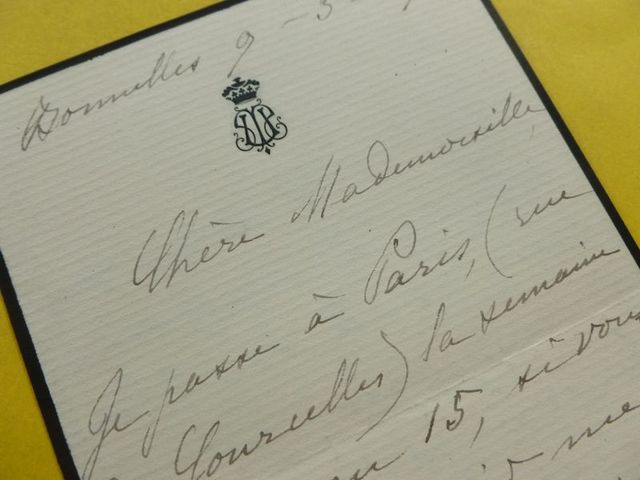 Bonnelles 9-3-
Chère Mademoiselle,
Je passe à Paris, (rue
Courcelles) la semaine
15, si vous
me